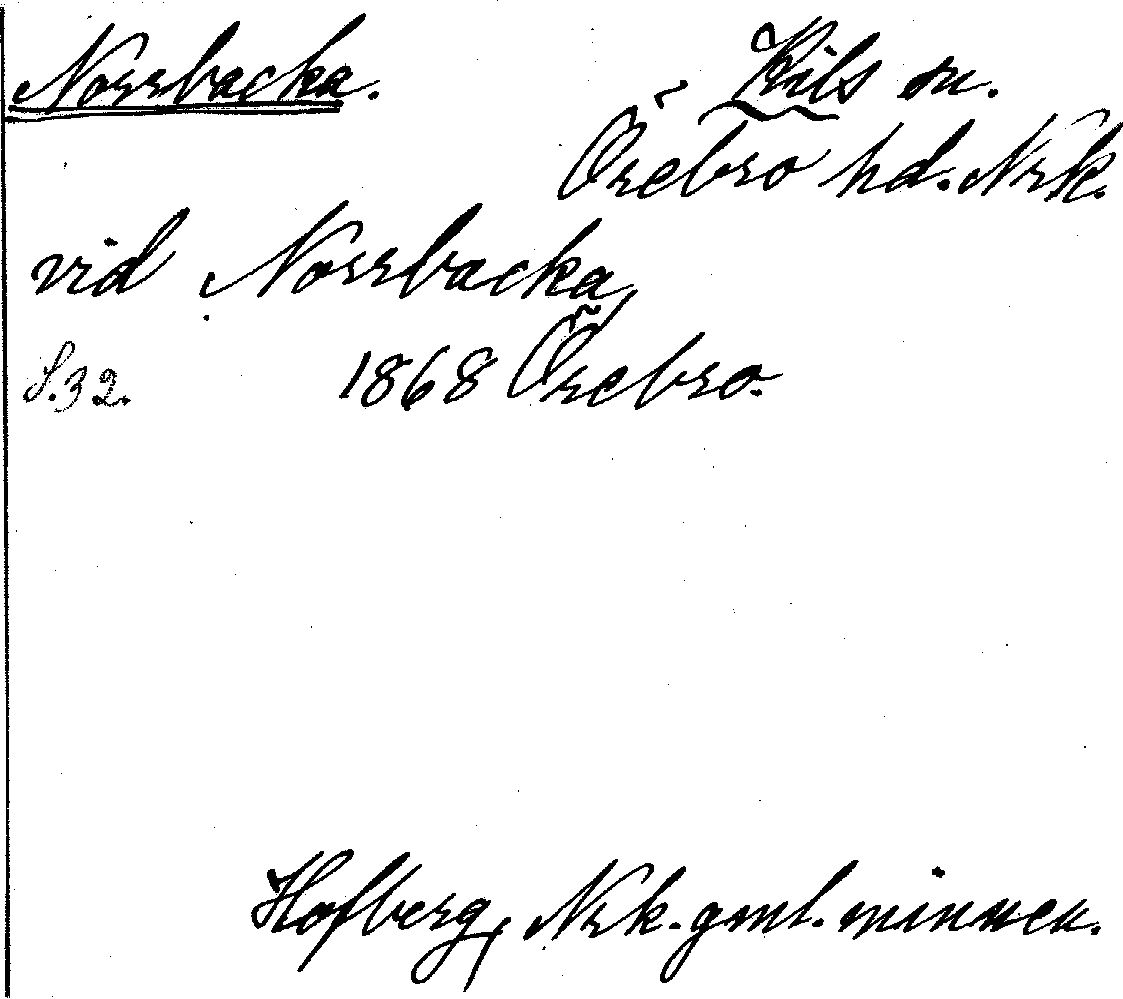 Norrbacka. Kils sn.
Örebro hd. Nrk.
vid Norrbacka,
S.32. 1868 Örebro.
Hofberg, Nrk. gml. minnen.